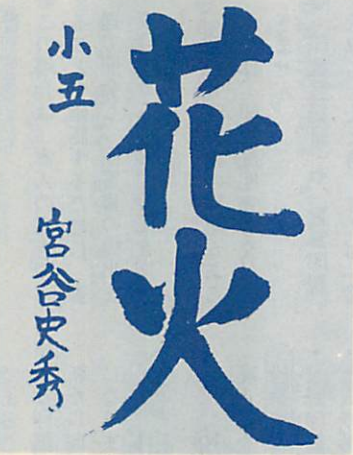 花火
小五
宮谷史秀